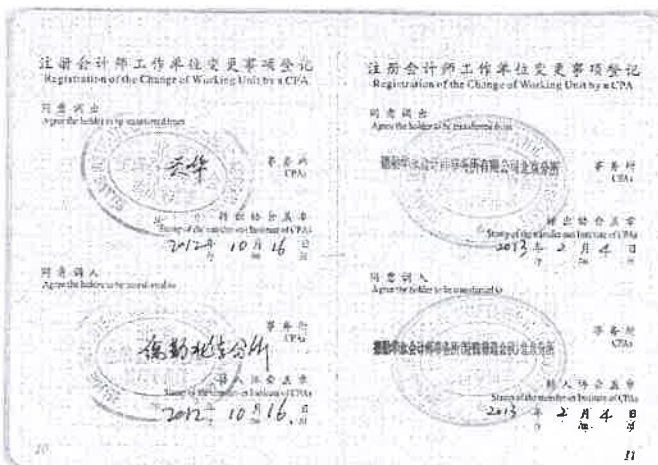 注册会计师工作单位变更事项登记
Registration of the Change of Working Unit by a CPA
同意调出
Agree the holder to be transferred from
事务所
CPAs
转出协会盖章
Stamp of the transfer-out Institute of CPAs
2012年 10月 16日
同意调入
Agree the holder to be transferred to
德勤北京分所
事务所
CPAs
转入协会盖章
Stamp of the transfer-in Institute of CPAs
2012年 10月 16日
10
注册会计师工作单位变更事项登记
Registration of the Change of Working Unit by a CPA
同意调出
Agree the holder to be transferred from
德勤华永会计师事务所有限公司北京分所
事务所
CPAs
转出协会盖章
Stamp of the transfer-out Institute of CPAs
2013年 2月 4日
同意调入
Agree the holder to be transferred to
德勤华永会计师事务所(特殊普通合伙)北京分所
事务所
CPAs
转入协会盖章
Stamp of the transfer-in Institute of CPAs
2013年 2月 4日
11